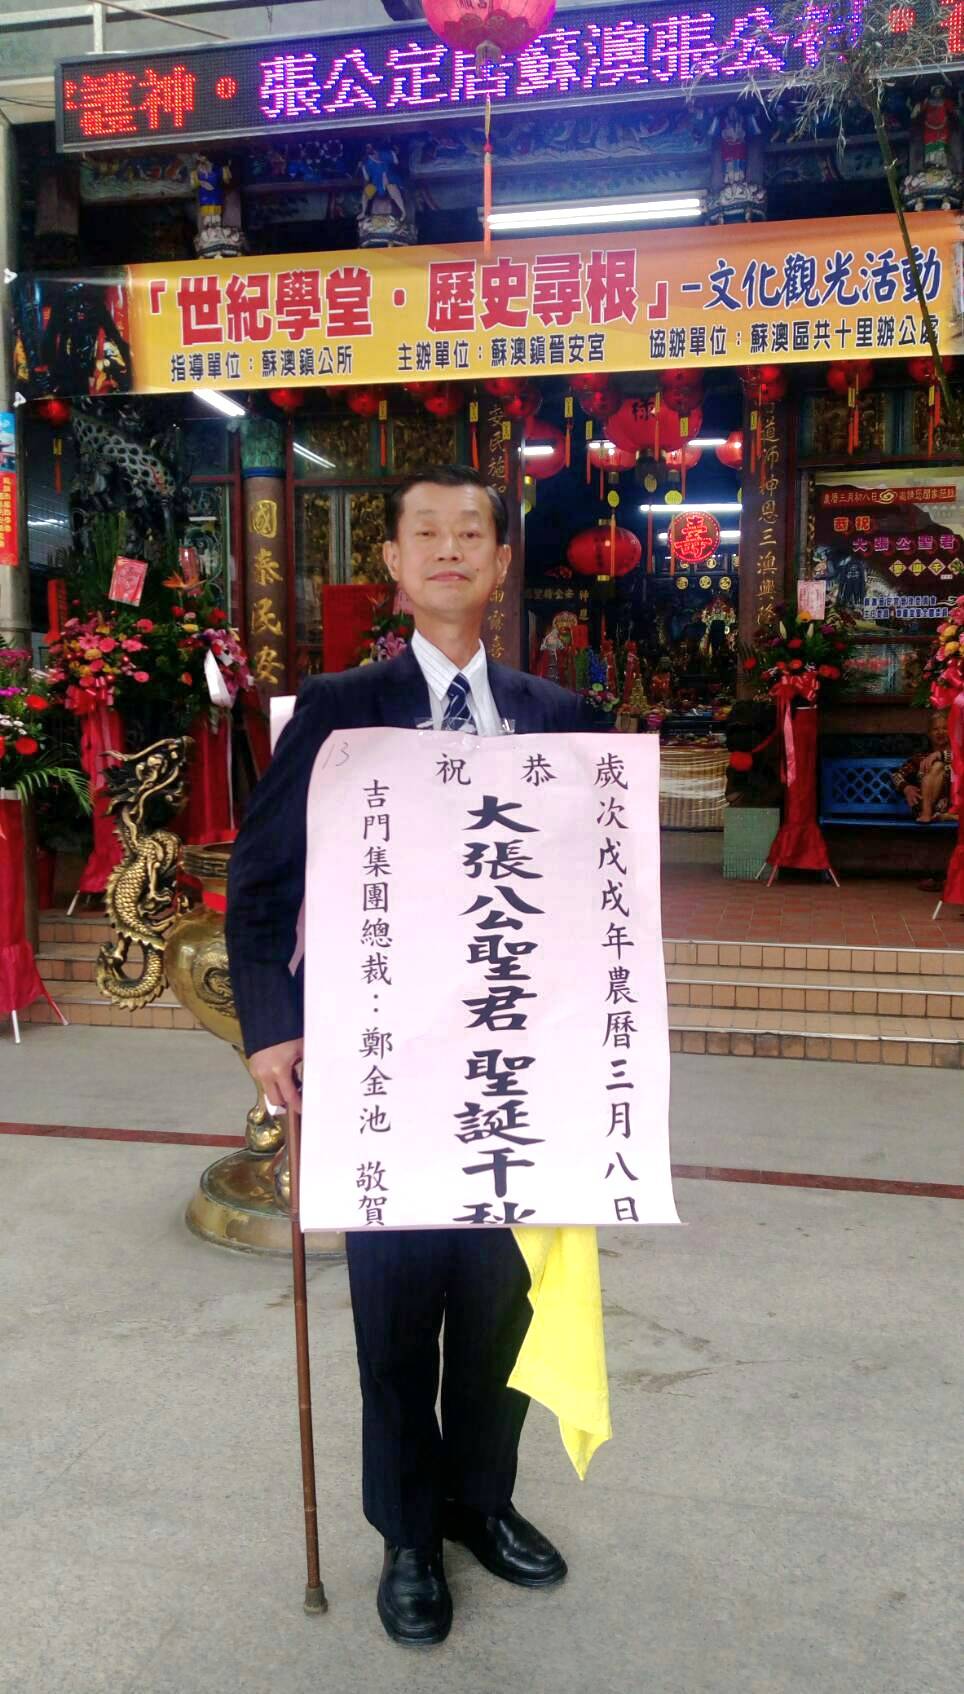 護神・張公定居蘇澳張公村・
「世紀學堂・歷史尋根」-文化觀光活動
指導單位：蘇澳鎮公所 主辦單位：蘇澳鎮晉安宮 協辦單位：蘇澳區共十里辦公處
國泰民安
農曆三月初八日
恭祝
大張公聖君
壽
13
歲次戊戌年農曆三月八日
恭祝
大張公聖君 聖誕千秋
吉門集團總裁：鄭金池 敬賀